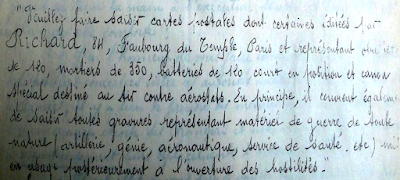 "Veuillez faire saisir cartes postales dont certaines éditées par
Richard, 84, Faubourg du Temple, Paris et représentant
de 120, mortiers de 350, batteries de 120 court en position et canon
spécial destiné au tir contre aérostats. En principe, il convient également
de saisir toutes gravures représentant matériel de guerre de toute
nature (artillerie, génie, aéronautique, service de santé. etc) mis
en usage postérieurement à l'ouverture des hostilités."